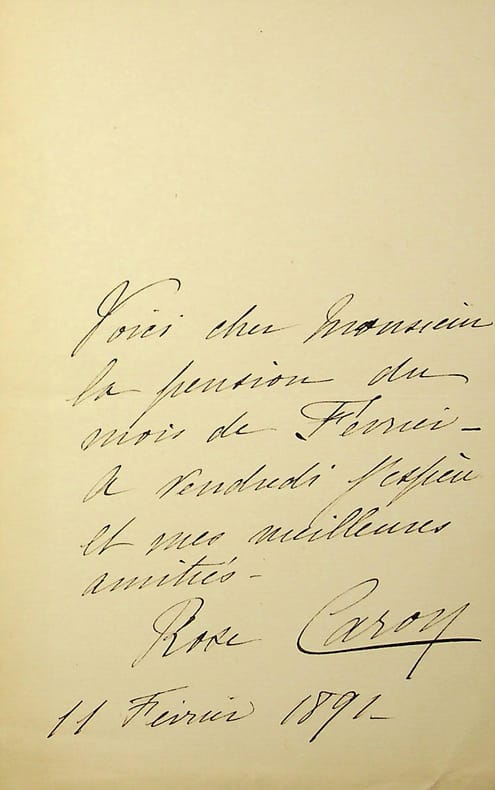 Voici cher Monsieur
la pension du
mois de Février –
A vendredi j'espère
et mes meilleures
amitiés –
Rose Caron
11 Février 1891 –